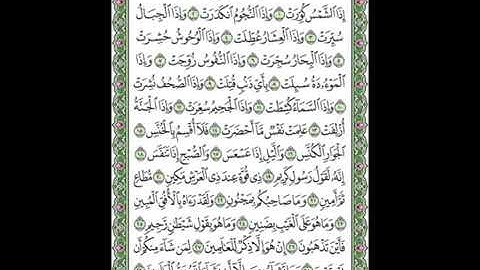 إِذَا الشَّمْسُ كُوِّرَتْ ۝ وَإِذَا النُّجُومُ انكَدَرَتْ ۝ وَإِذَا الْجِبَالُ
سُيِّرَتْ ۝ وَإِذَا الْعِشَارُ عُطِّلَتْ ۝ وَإِذَا الْوُحُوشُ حُشِرَتْ
۝ وَإِذَا الْبِحَارُ سُجِّرَتْ ۝ وَإِذَا النُّفُوسُ زُوِّجَتْ ۝ وَإِذَا
الْمَوْءُۥدَةُ سُئِلَتْ ۝ بِأَيِّ ذَنۢبٍ قُتِلَتْ ۝ وَإِذَا الصُّحُفُ نُشِرَتْ
۝ وَإِذَا السَّمَآءُ كُشِطَتْ ۝ وَإِذَا الْجَحِيمُ سُعِّرَتْ ۝ وَإِذَا الْجَنَّةُ
أُزْلِفَتْ ۝ عَلِمَتْ نَفْسٌ مَّآ أَحْضَرَتْ ۝ فَلَآ أُقْسِمُ بِالْخُنَّسِ
۝ الْجَوَارِ الْكُنَّسِ ۝ وَالَّيْلِ إِذَا عَسْعَسَ ۝ وَالصُّبْحِ إِذَا تَنَفَّسَ
۝ إِنَّهُۥ لَقَوْلُ رَسُولٍ كَرِيمٍ ۝ ذِي قُوَّةٍ عِندَ ذِي الْعَرْشِ مَكِينٍ ۝ مُّطَاعٍ
ثَمَّ أَمِينٍ ۝ وَمَا صَاحِبُكُم بِمَجْنُونٍ ۝ وَلَقَدْ رَءَاهُ بِالْأُفُقِ الْمُبِينِ
۝ وَمَا هُوَ عَلَى الْغَيْبِ بِضَنِينٍ ۝ وَمَا هُوَ بِقَوْلِ شَيْطَٰنٍ رَّجِيمٍ ۝
فَأَيْنَ تَذْهَبُونَ ۝ إِنْ هُوَ إِلَّا ذِكْرٌ لِّلْعَٰلَمِينَ ۝ لِمَن شَآءَ مِنكُمْ أَن